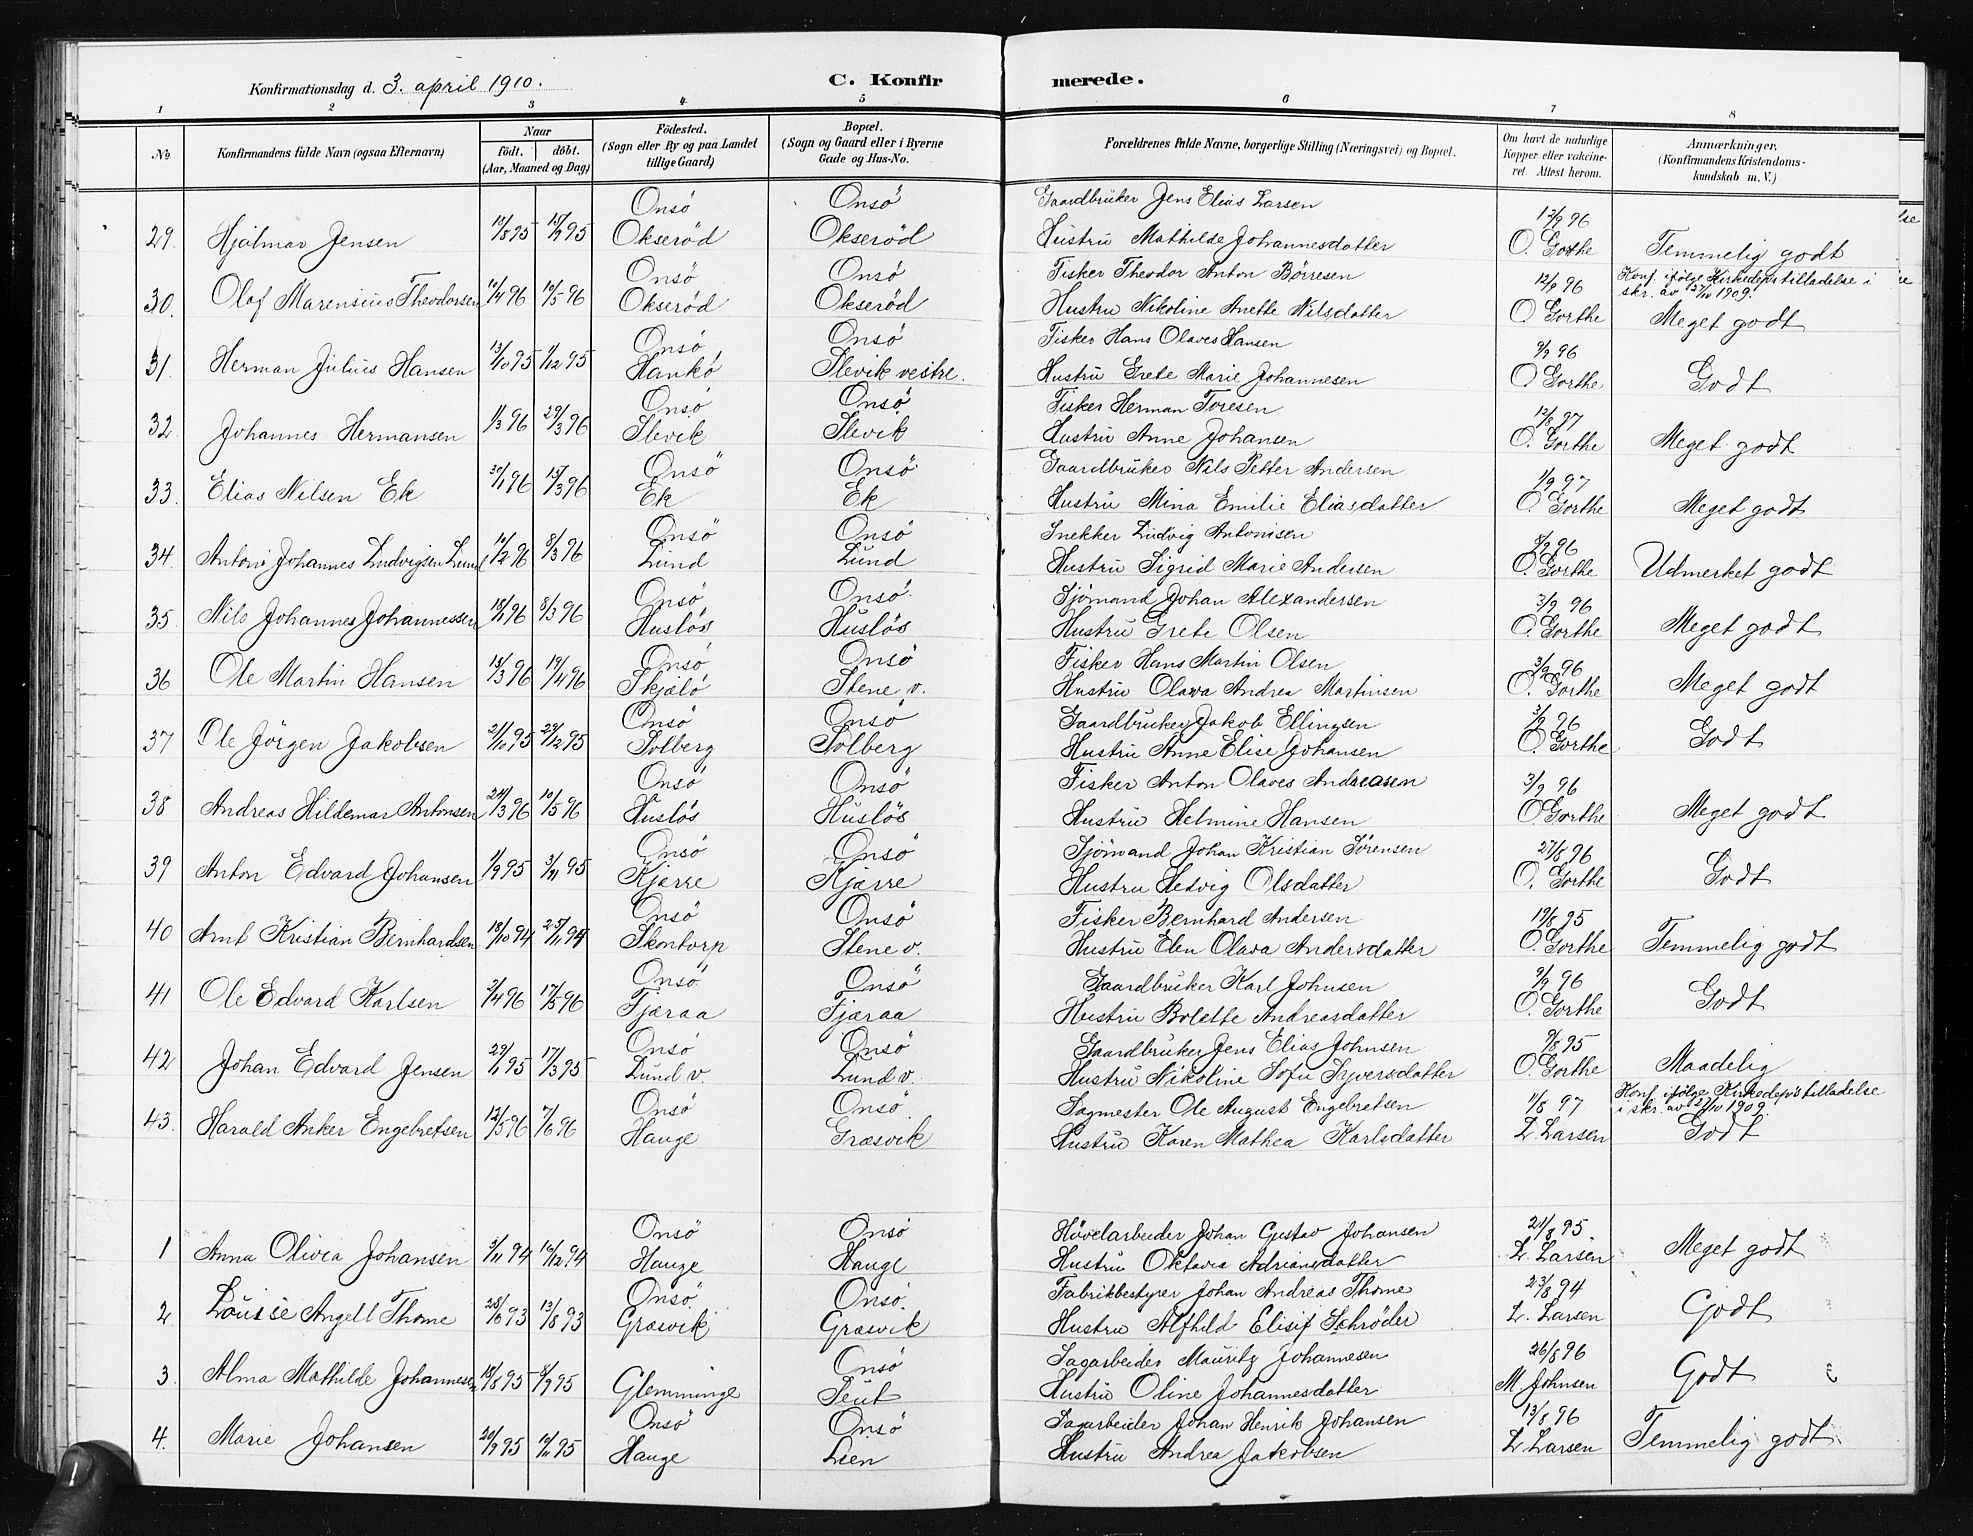 Konfirmationsdag d. 3. april 1910.
C. Konfirmerede.
1 2 3 4 5 6 7 8
No
Konfirmandens fulde Navn (ogsaa Efternavn)
Naar
födt. döbt.
(Aar, Maaned og Dag)
Födested.
(Sogn eller By og paa Landet
tillige Gaard)
Bopæl.
(Sogn og Gaard eller i Byerne
Gade og Hus-No.
Forældrenes fulde Navne, borgerlige Stilling (Næringsvei) og Bopæl.
Om havt de naturlige
Kopper eller vakcine-
ret. Attest herom.
Anmærkninger.
(Konfirmandens Kristendoms-
kundskab m. V.)
Onsö Onsö Gaardbruker Jens Elias Larsen 12/9 96
29. Hjalmar Jensen Okseröd Okseröd Hustru Mathilde Johannesdatter O. Gorthe Temmelig godt
Onsö Onsö Fisker Theodor Anton Børresen 12/9 96 Konf. ifølge Kirkedeps tilladelse i
skr. av 27/10 1909.
30. Olaf Marensius Theodorsen 10/5 96 Okseröd Okseröd Hustru Nikoline Anette Nilsdatter O Gorthe Meget godt
Onsö Onsö Fisker Hans Olaves Hansen 9/9 96
31. Herman Julius Hansen 13/10 95 1/12 95 Hankö Slevik vestre. Hustru Grete Marie Johannesen O Gorthe Godt
Onsö Onsö Fisker Herman Toresen 12/8 97
32. Johannes Hermansen 1/3 96 29/3 96 Slevik Slevik Hustru Anne Johansen O. Gorthe Meget godt
Onsö Onsö Gaardbruker Nils Petter Andersen 1/9 97
33. Elias Nilsen Ek 30/1 96 15/3 96 Ek Ek Hustru Mina Emilie Eliasdatter O. Gorthe Meget godt
Onsö Onsö Snekker Ludvig Antonisen 8/9 96
34. Antoni Johannes Ludvigsen Lund 8/3 96 Lund Lund Hustru Sigrid Marie Andersen O. Gorthe Udmerket godt
Onsö Onsö Sjömand Johan Alexandersen 3/9 96
35. Nils Johannes Johannessen 8/3 96 Huslös Huslös Hustru Grete Olsen O. Gorthe Meget godt
Onsö Onsö Fisker Hans Martin Olsen 3/9 96
36 Ole Martin Hansen 18/3 96 19/4 96 Skjælö Stene v. Hustru Olava Andrea Martinsen O. Gorthe Meget godt
Onsö Onsö Gaardbruker Jakob Ellingsen 3/9 96
37 Ole Jörgen Jakobsen 21/10 95 29/12 95 Solberg Solberg Hustru Anne Elise Johansen O. Gorthe Godt
Onsö Onsö Fisker Anton Olaves Andreasen 3/9 96
38 Andreas Hildemar Antonsen 24/3 96 10/5 96 Huslös Huslös Hustru Helmine Hansen O. Gorthe Meget godt
Onsö Onsö Sjömand Johan Kristian Sörensen 27/8 96
39 Anton Edvard Johansen 1/9 95 3/11 95 Kjærre Kjærre Hustru Hedvig Olsdatter O. Gorthe Godt
Onsö Onsö Fisker Bernhard Andersen 19/8 95
40 Arnt Kristian Bernhardsen 18/10 94 25/11 94 Skontorp Stene v. Hustru Elen Olava Andersdatter O. Gorthe Temmelig godt
Onsö Onsö Gaardbruker Karl Johnsen 9/9 96
41 Ole Edvard Karlsen 3/4 96 17/5 96 Fjæraa Fjæraa Hustru Bolette Andreasdatter O. Gorthe Godt
Onsö Onsö Gaardbruker Jens Elias Johnsen 9/8 95
42 Johan Edvard Jensen 29/1 95 17/3 95 Lund v. Lund v. Hustru Nikoline Sofie Syversdatter O Gorthe Maadelig
Onsö Onsö Sagmester Ole August Engebretsen 11/8 97 Konf. ifølge Kirkedeps tilladelse
i skr. av 27/10 1909.
43. Harald Anker Engebretsen 12/5 96 7/6 96 Hauge Græsvik Hustru Karen Mathea Karlsdatter L. Larsen Godt
Onsö Onsö Hövelarbeider Johan Gustav Johansen 21/8 95.
1 Anna Olivia Johansen 3/11 94 16/12 94 Hauge Hauge Hustru Oktavia Adriansdatter L. Larsen Meget godt
Onsö Onsö. Fabrikbestyrer Johan Andreas Thome 23/8 94
2 Louise Angell Thome 28/6 93 13/8 93 Græsvik Græsvik Hustru Alfhild Elisif Schrøder L. Larsen Godt
Onsö Sagarbeider Mauritz Johannesen 26/8 96
3. Alma Mathilde Johannesen 8/9 95 Glemminge Teut Hustru Oline Johannesdatter M Johnsen Godt
Onsö Onsö Sagarbeider Johan Henrik Johansen 13/8 96
4. Marie Johansen 20/9 95 Hauge Lien Hustru Andrea Jakobsen L. Larsen Temmelig godt